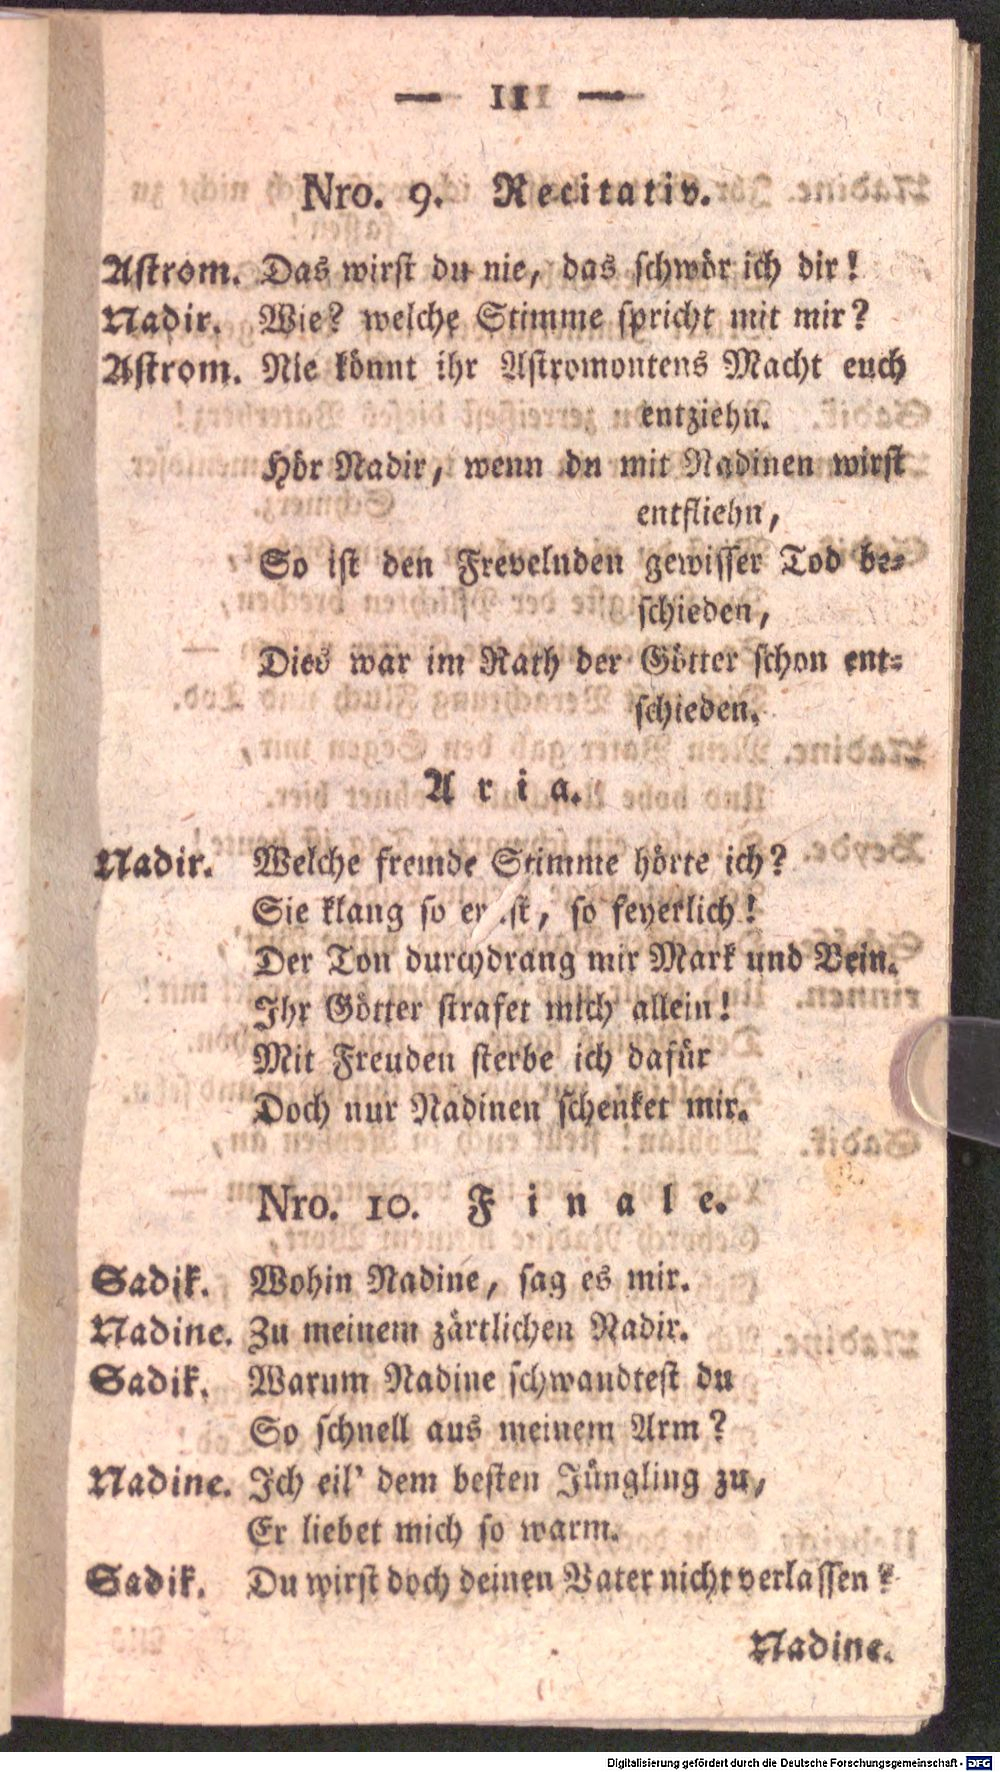 — 11 —
Nro. 9. Recitativ.
Astrom. Das wirst du nie, das schwör ich dir!
Nadir. Wie? welche Stimme spricht mit mir?
Astrom. Nie könnt ihr Astromontens Macht euch
entziehn.
Hör Nadir, wenn du mit Nadinen wirst
entfliehn,
So ist den Frevelnden gewisser Tod be-
schieden,
Dies war im Rath der Götter schon ent-
schieden.
Aria.
Nadir. Welche fremde Stimme hörte ich?
Sie klang so ernst, so feyerlich!
Der Ton durchdrang mir Mark und Bein.
Ihr Götter strafet mich allein!
Mit Freuden sterbe ich dafür
Doch nur Nadinen schenket mir.
Nro. 10. Finale.
Sadik. Wohin Nadine, sag es mir.
Nadine. Zu meinem zärtlichen Nadir.
Sadik. Warum Nadine schwandtest du
So schnell aus meinem Arm?
Nadine. Ich eil' dem besten Jüngling zu,
Er liebet mich so warm.
Sadik. Du wirst doch deinen Vater nicht verlassen?
Nadine.
Digitalisierung gefördert durch die Deutsche Forschungsgemeinschaft - DFG